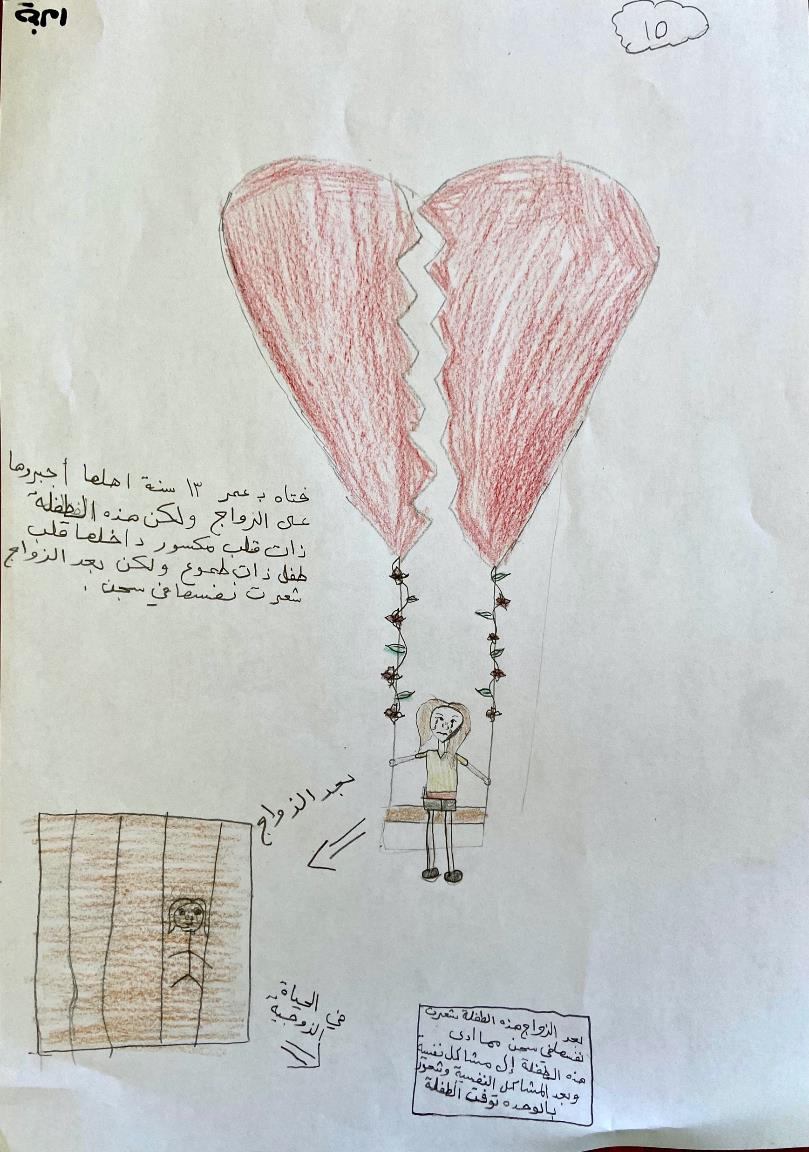 ١٥
فتاه بـ عمر ١٣ سنة اهلها أجبروها
على الزواج ولكن هذه الطفلة
ذات قلب مكسور داخلها قلب
طفل ذات طموع ولكن بعد الزواج
شعرت نفسها في سجن .
بعد الزواج
في الحياة
الزوجية
بعد الزواج هذه الطفلة شعرت
نفسها في سجن مما ادى
هذه الطفلة إلى مشاكل نفسية
وبعد المشاكل النفسية وشعور
بالوحده توفت الطفلة